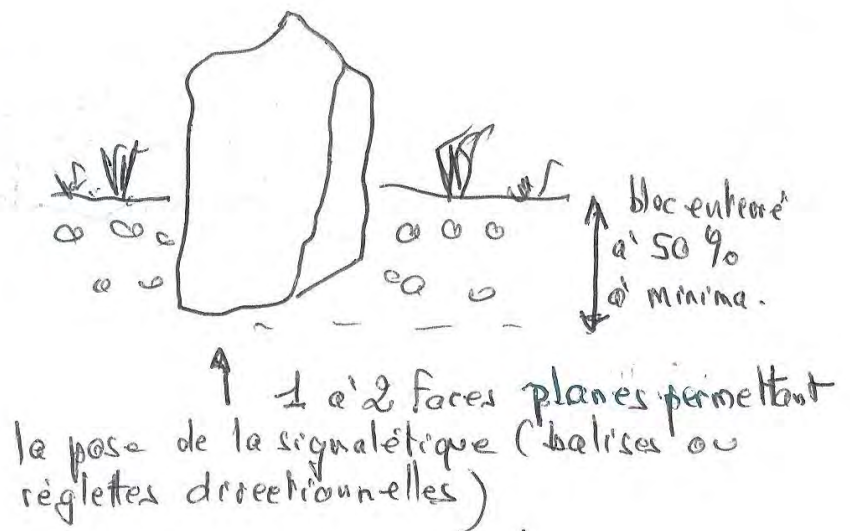 bloc enterré
à 50 %
à minima.
1 à 2 faces planes permettant
la pose de la signalétique (balises ou
réglettes directionnelles)